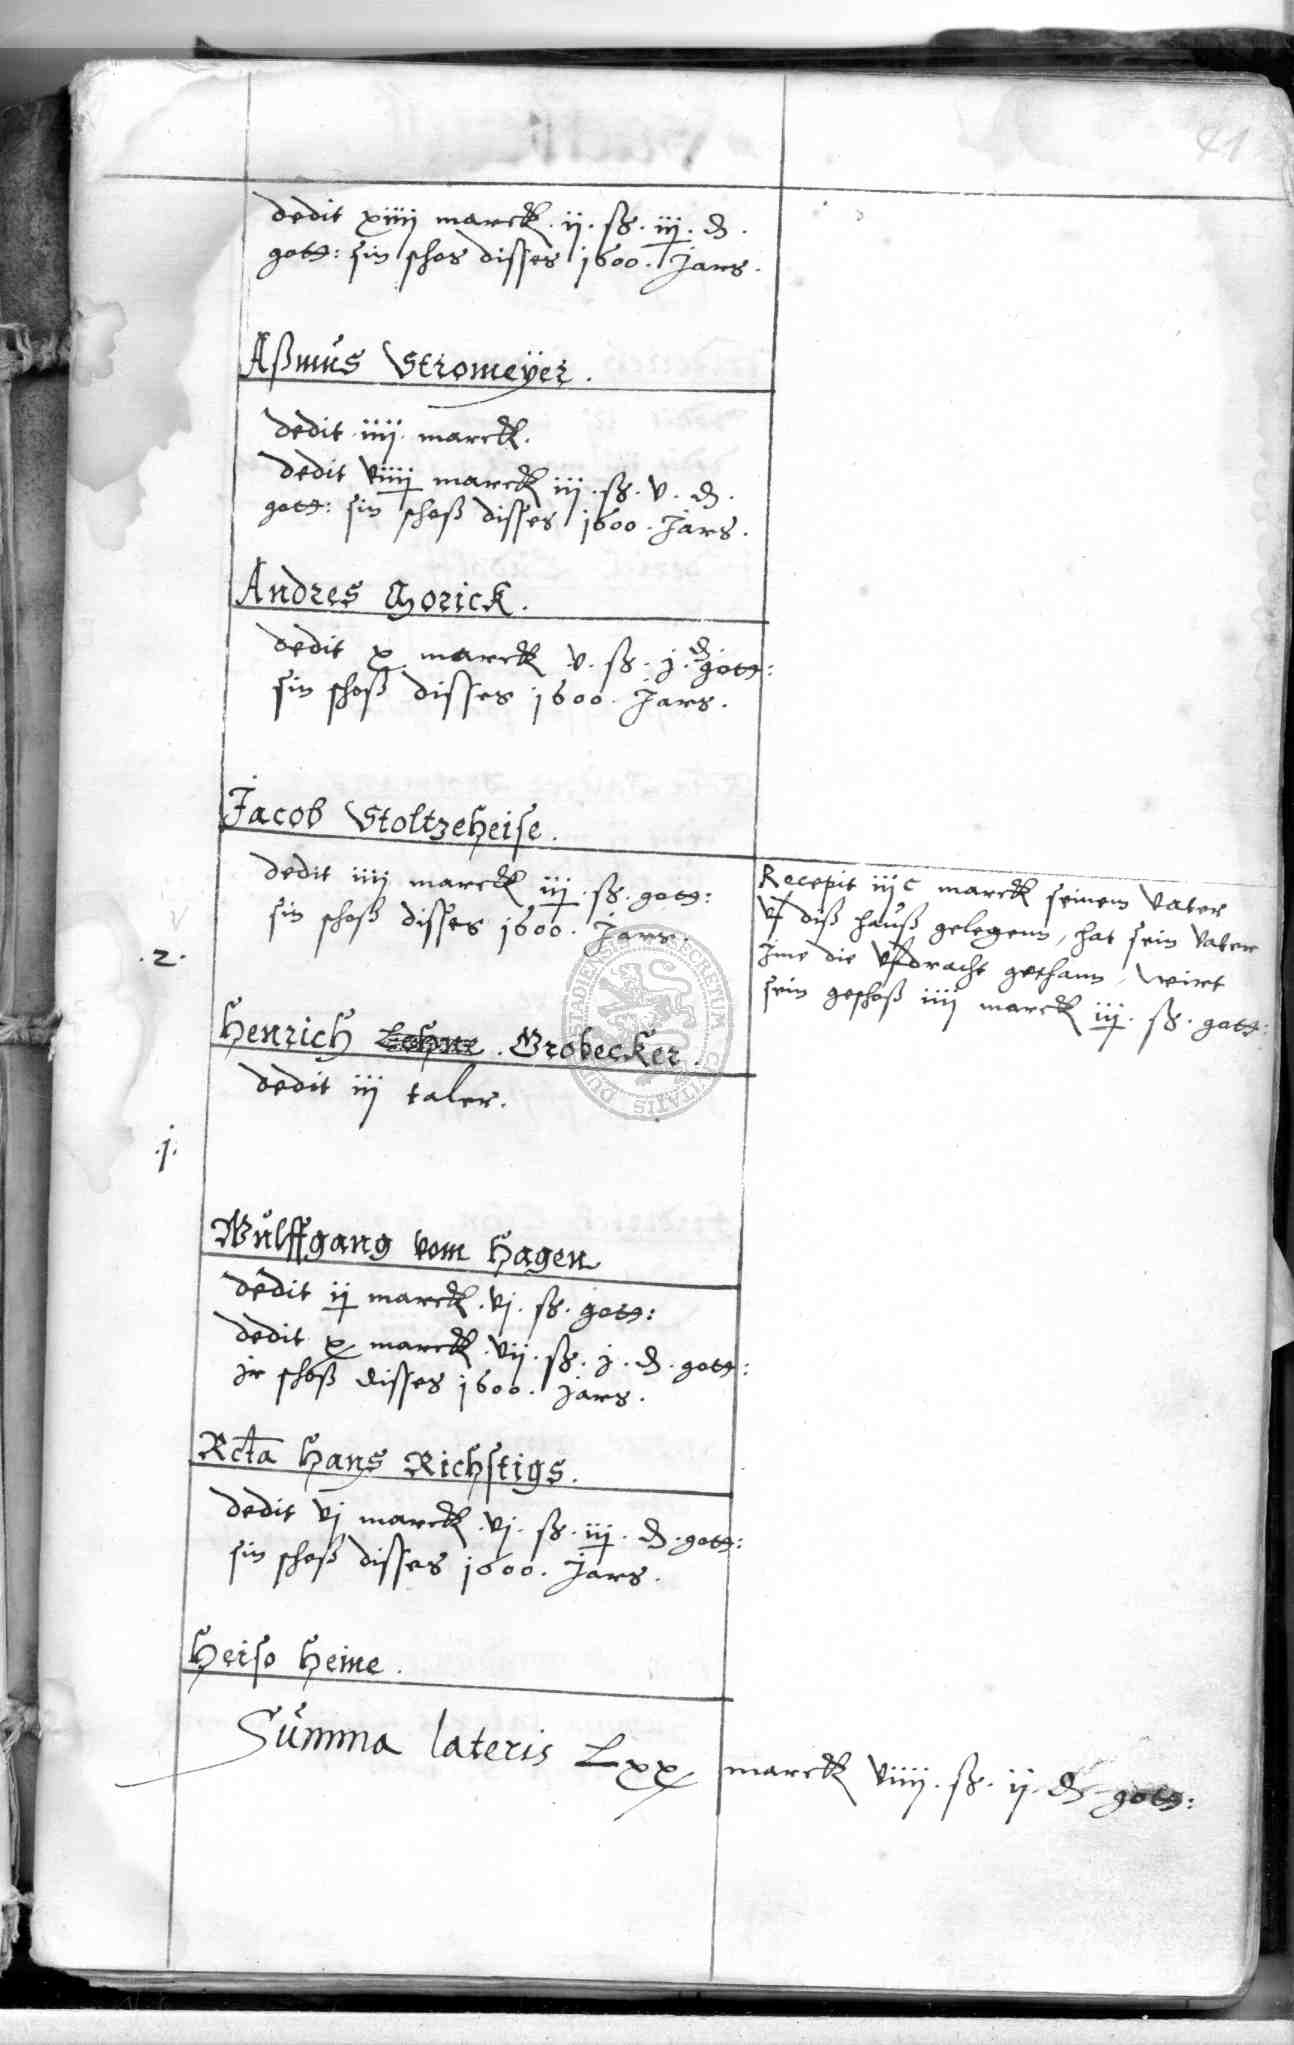 41
dedit xiiij marck. ij. ß. iij. ₰.
gott: sin schos disses 1600. Jars.
Aßmus Stromeyer.
dedit iiij marck.
dedit viiij marck iij. ß. v. ₰.
gott: sin schoß disses 1600. Jars.
Andres Gorick.
dedit x marck v. ß. j. ₰ gott:
sin schoß disses 1600. Jars.
Jacob Stoltzeheise.
dedit iiij marck iij. ß. gott:
sin schoß disses 1600. Jars.
Recepit iijC marck seinem Vater
vf diß hauß gelegenn, hat sein Vater
jme die vfdracht gethann, wirt
sein geschoß iiij marck iij. ß. gott:
.2.
Henrich Grobecker.
dedit iij taler.
.j.
Wulffgang vom Hagen
dedit ij marck. vj. ß. gott:
dedit x marck. vij. ß. j. ₰. gott:
jr schoß disses 1600. Jars.
Rcta Hans Richstigs.
dedit vj marck. vj. ß. iij. ₰. gott:
sin schoß disses 1600. Jars.
Heiso Heine.
Summa lateris Lxx marck viiij. ß. ij. ₰ gott:
SECRETUM CIVITATIS DUDERSTADIENSIS